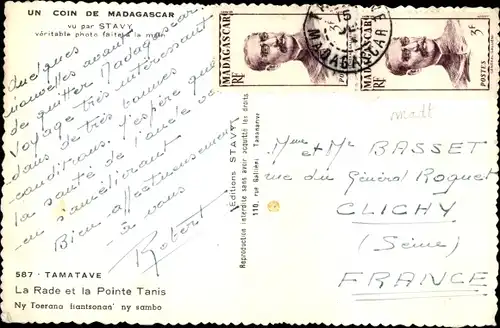 UN COIN DE MADAGASCAR
vu par STAVY
véritable photo faite à la main
Quelques
nouvelles avant
de quitter Madagascar
Voyage très intéressant
dans de très bonnes
conditions. J'espère que
la santé de l'oncle va
en s'améliorant
Bien affectueusement
à vous
Robert
587 - TAMATAVE
La Rade et la Pointe Tanis
Ny Toerana fiantsonan' ny sambo
Editions STAVY
Reproduction interdite sans avoir acquitté les droits
110, rue Galliéni, Tananarive
MADAGASCAR
RF
MADAGASCAR
RF
POSTES
3F
MADAGASCAR
madt
Mme et Mr BASSET
rue du Général Roguet
CLICHY
(Seine)
FRANCE